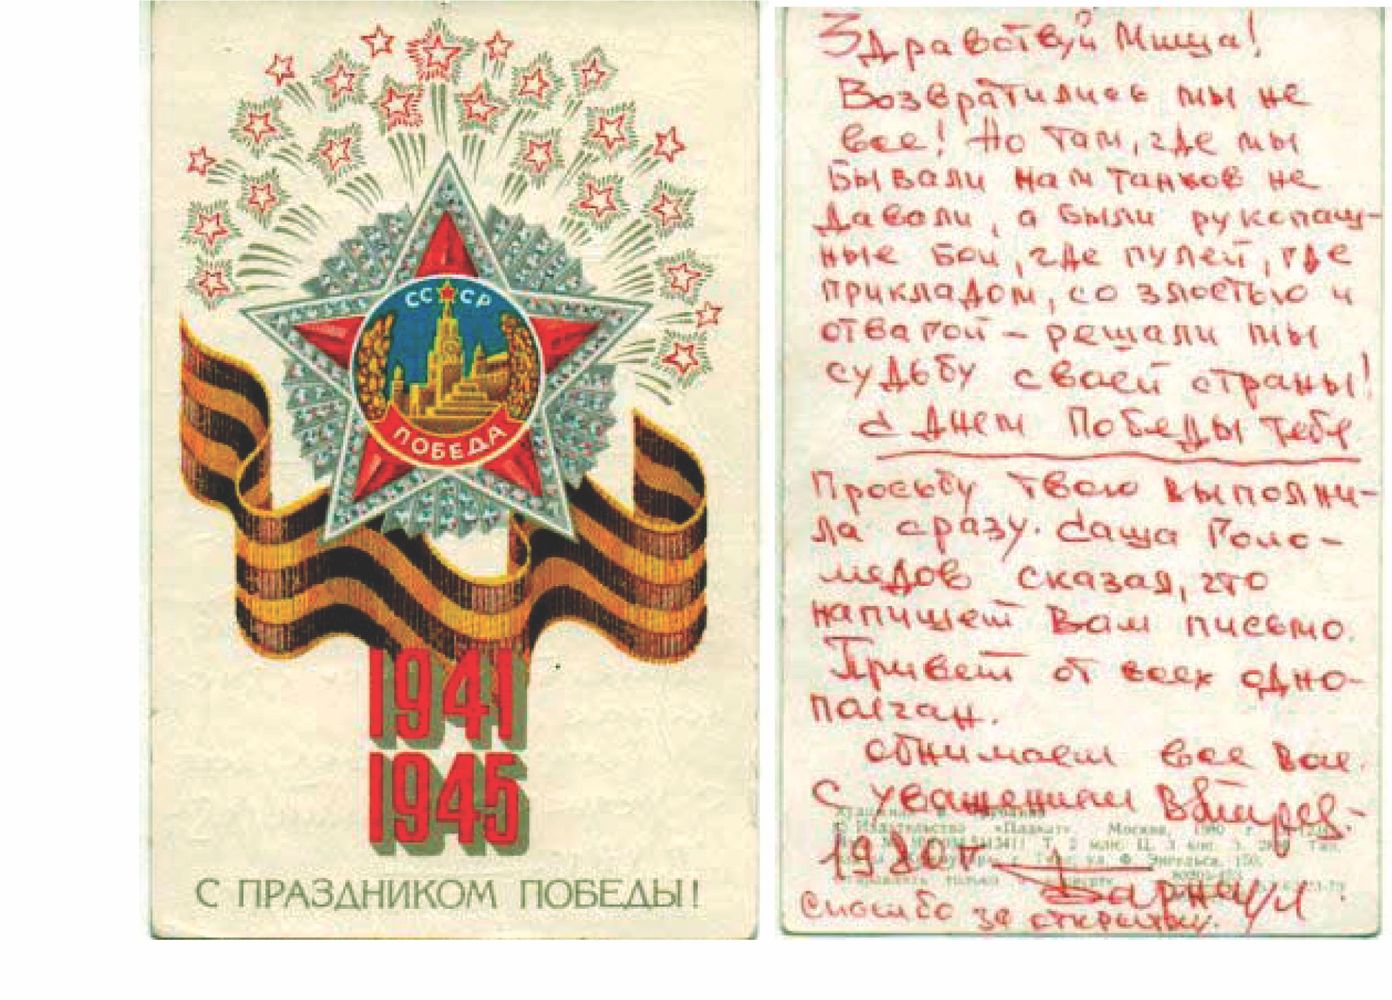 СССР
ПОБЕДА
1941
1945
С ПРАЗДНИКОМ ПОБЕДЫ!
Здравствуй Миша!
Возвратились мы не
все! Но там, где мы
бывали нам танков не
давали, а были рукопаш-
ные бои, где пулей, где
прикладом, со злостью и
отвагой – решали мы
судьбу своей страны!
С Днем Победы тебе
Просьбу твою выполни-
ла сразу. Саша
сказал, что
напишет Вам письмо.
Привет от всех одно-
полчан.
Обнимаем все Вас.
С уважением
Издательство «Плакат». Москва, 1980 г.
ул. Ф. Энгельса, 150.
1980 г Барнаул
Спасибо за открытку.